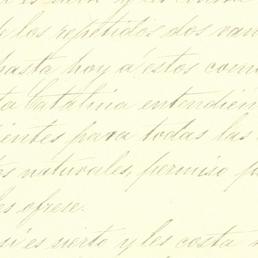 de los repetidos dos van
hasta hoy a estos com
ta Catalina entendien
ientes para todas las
os naturales, permiso p
les ofrese.
si es sierto y les costa